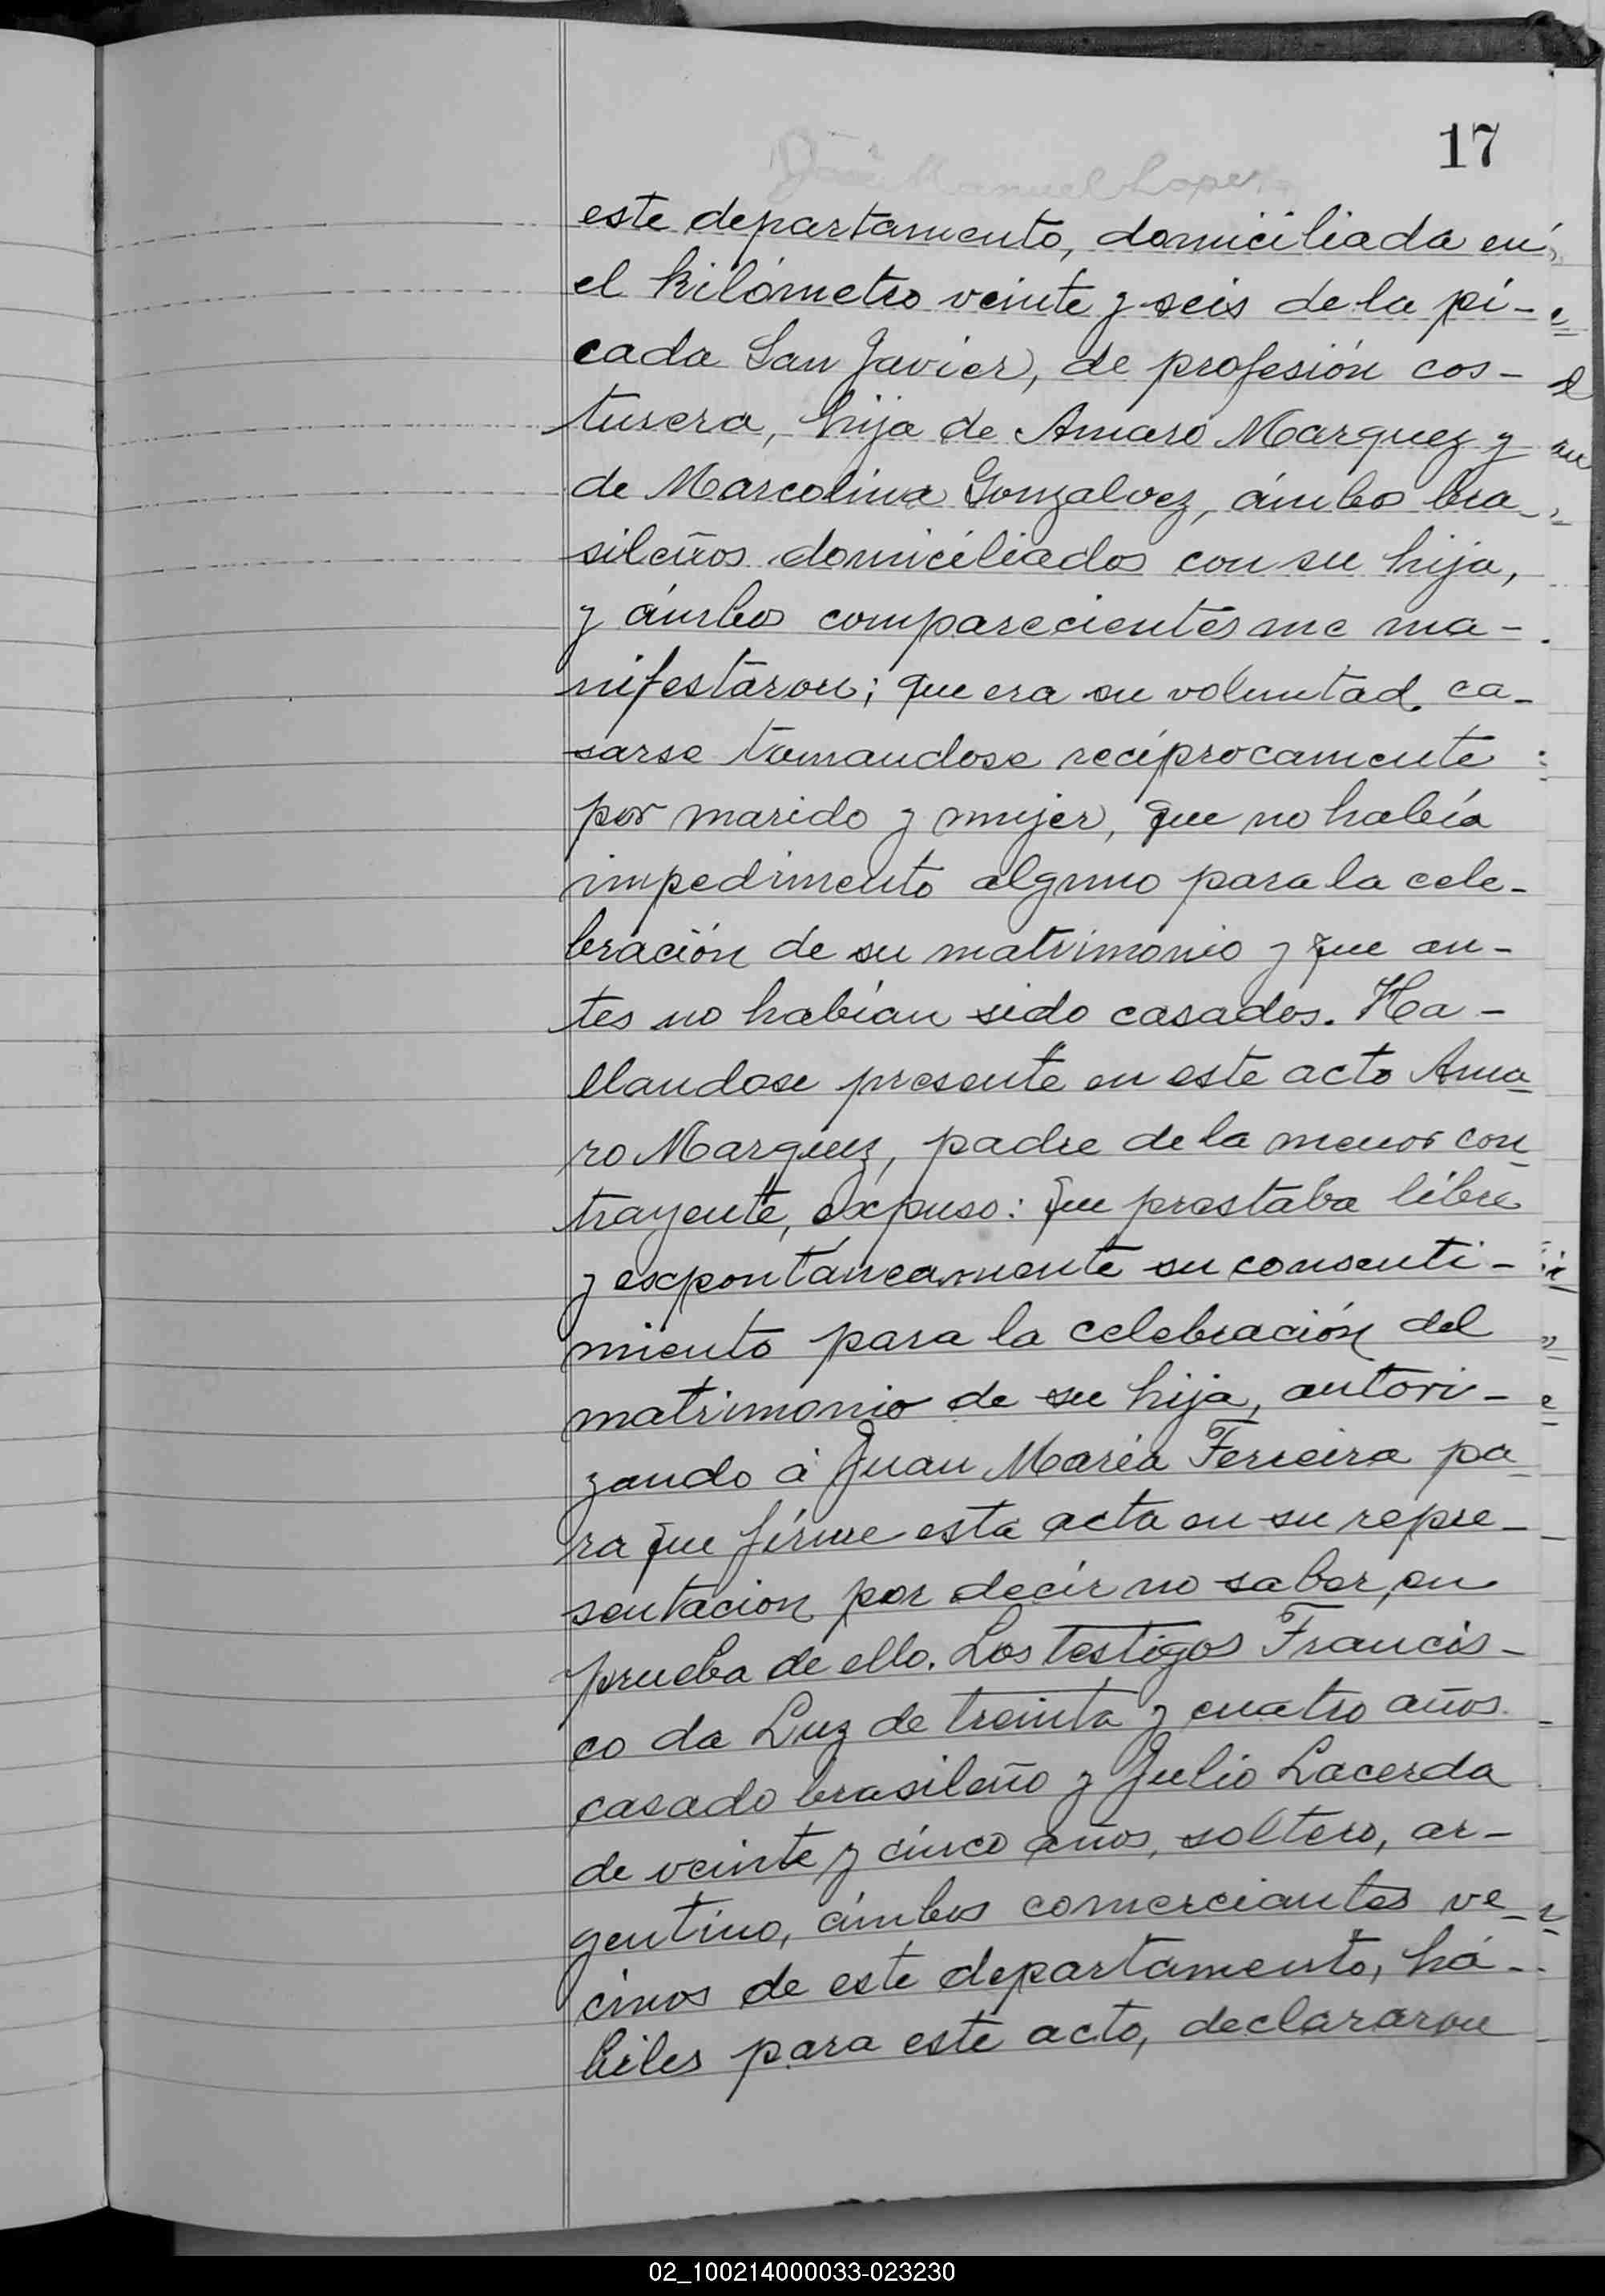 17
Manuel Lopez
este departamento, domiciliada en
el kilómetro veinte y seis de la pi-
cada San Javier, de profesión cos-
turera, hija de Amaro Marquez y
de Marcolina Gonzalvez, ámbos bra-
sileños domiciliados con su hija,
y ámbos comparecientes me ma-
nifestaron; que era su voluntad ca-
sarse tomandose recíprocamente
por marido y mujer, que no había
impedimento alguno para la cele-
bración de su matrimonio y que an-
tes no habían sido casados. Ha-
llandose presente en este acto Ama-
ro Marquez, padre de la menor con
trayente, expuso: que prestaba libre
y expontáneamente su consenti-
miento para la celebración del
matrimonio de su hija, autori-
zando á Juan María Ferreira pa-
ra que firme esta acta en su repre-
sentación por decir no saber, en
prueba de ello. Los testigos Francis-
co da Luz de treinta y cuatro años
casado brasileño y Julio Lacerda
de veinte y cinco años, soltero, ar-
gentino, ámbos comerciantes ve-
cinos de este departamento, há-
biles para este acto, declararon
02_100214000033-023230